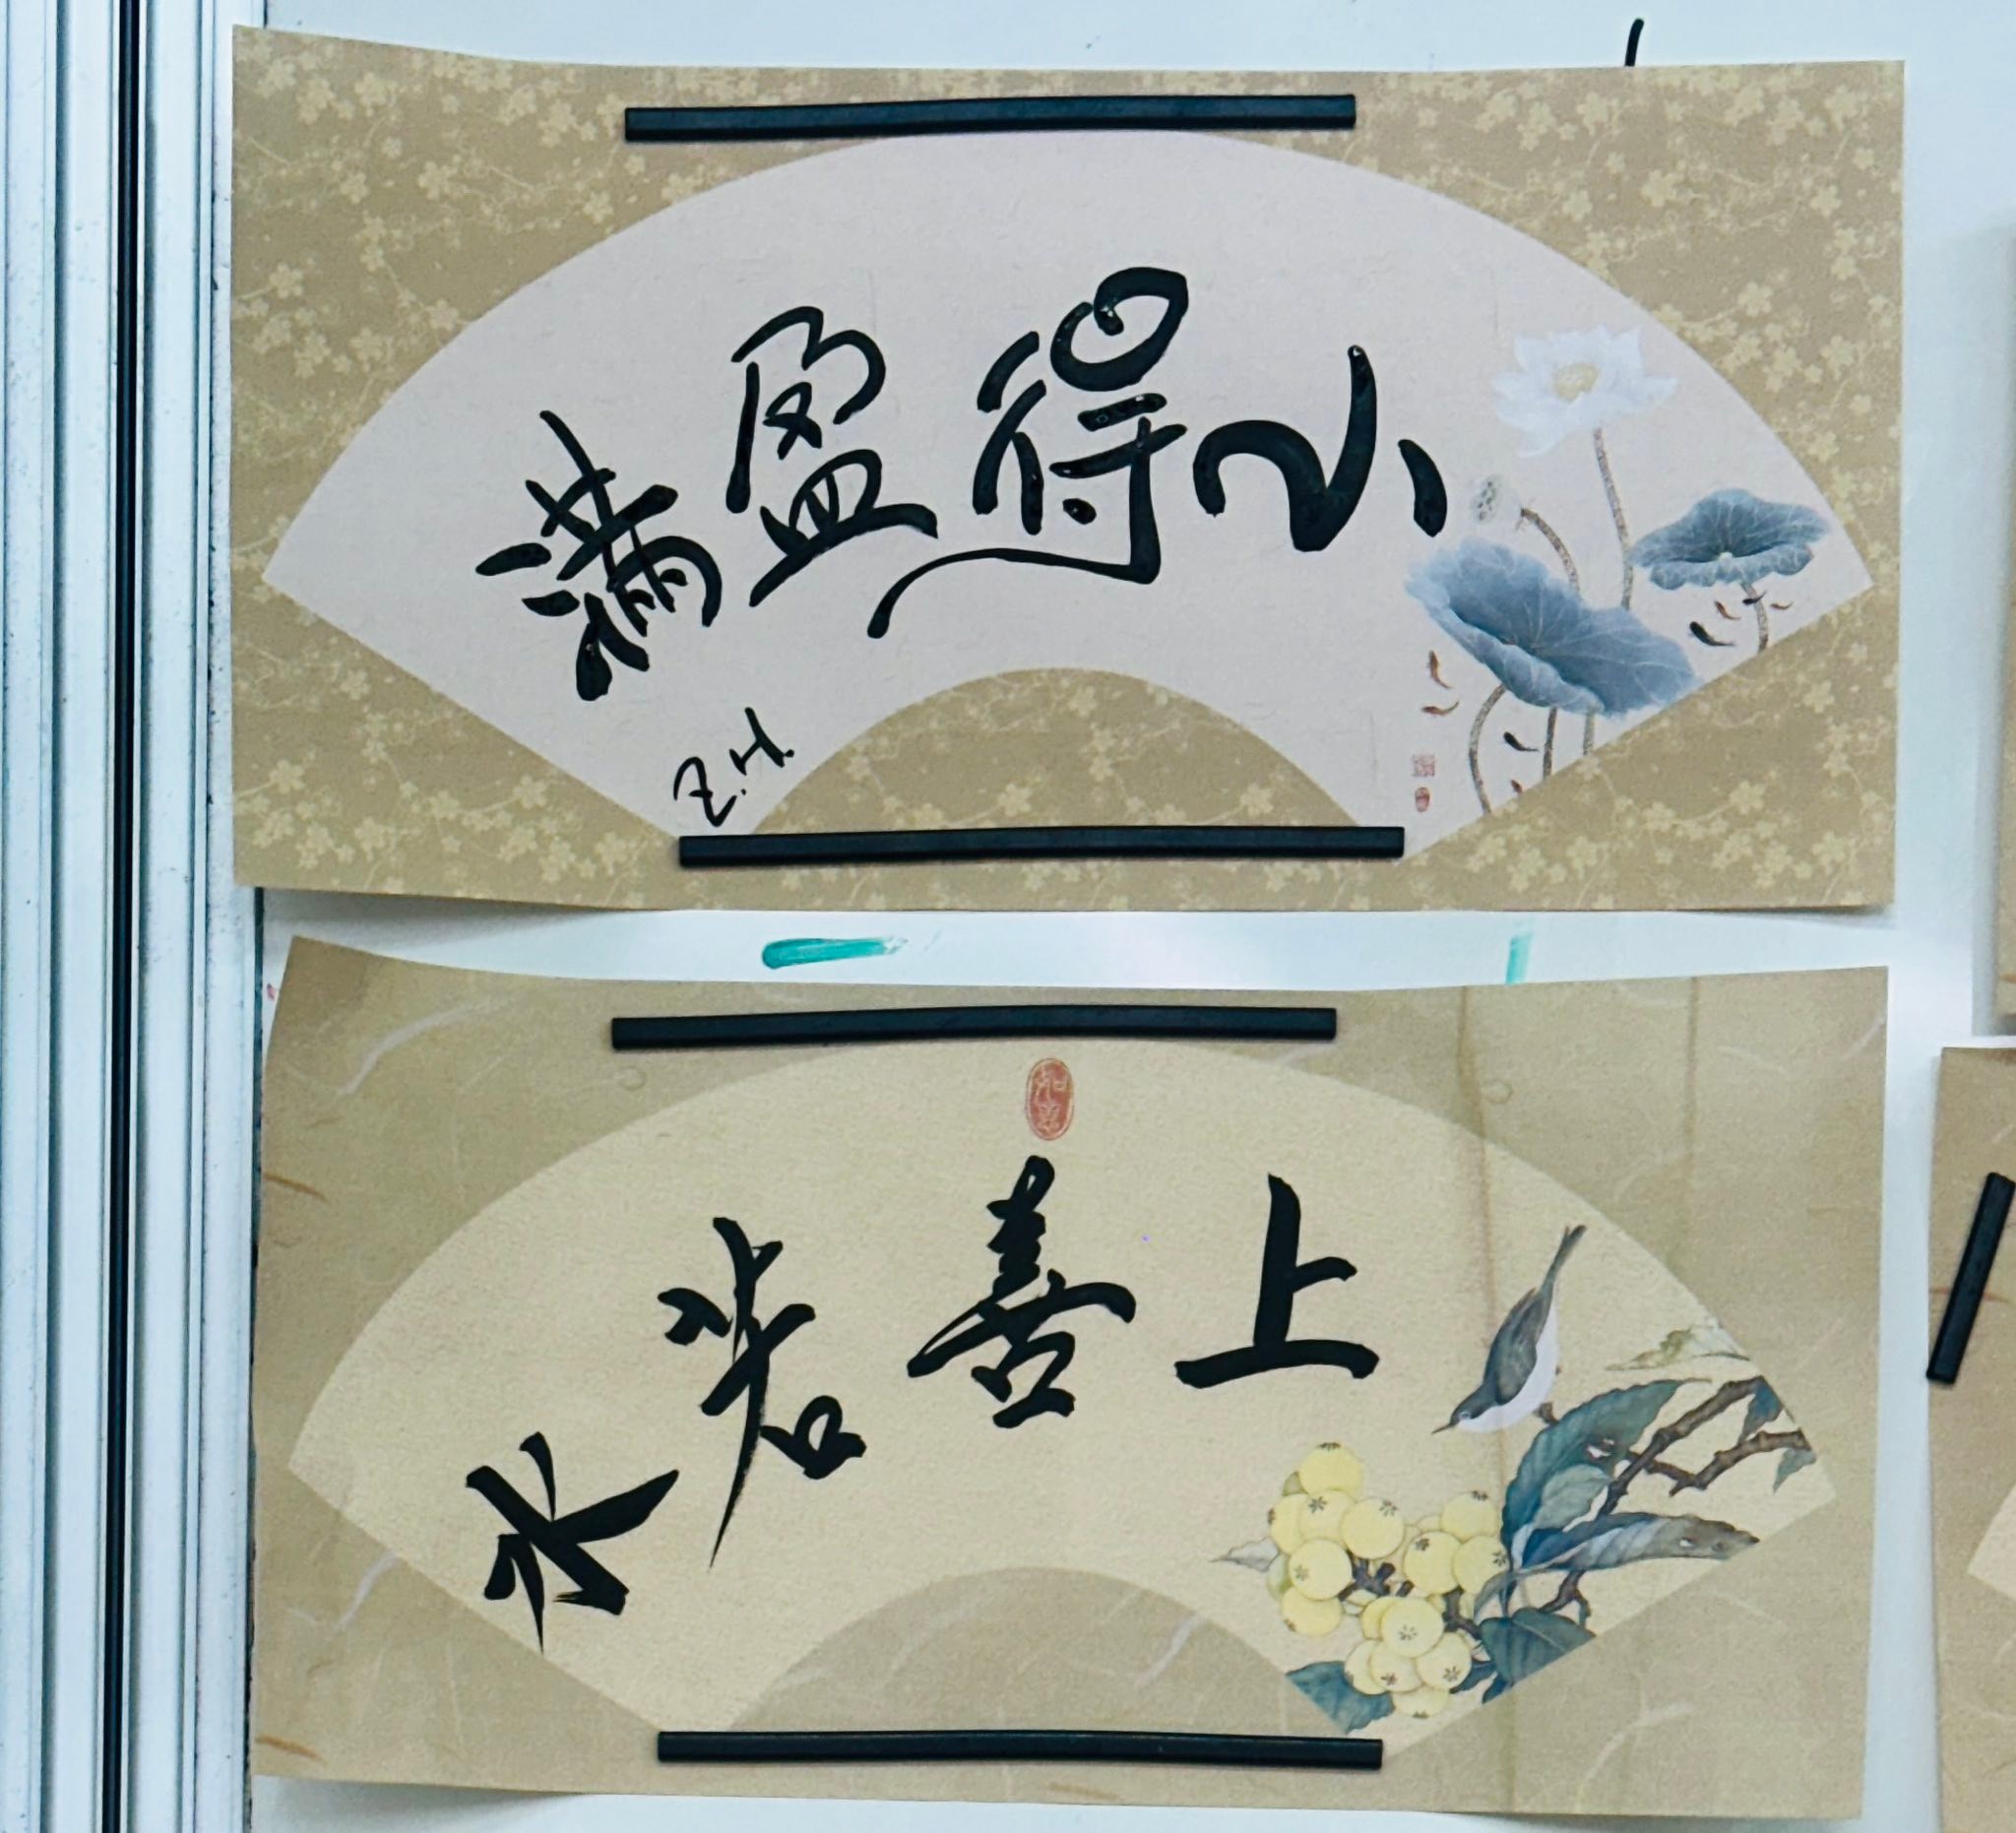 小得盈满
Z.H.
如意
上善若水